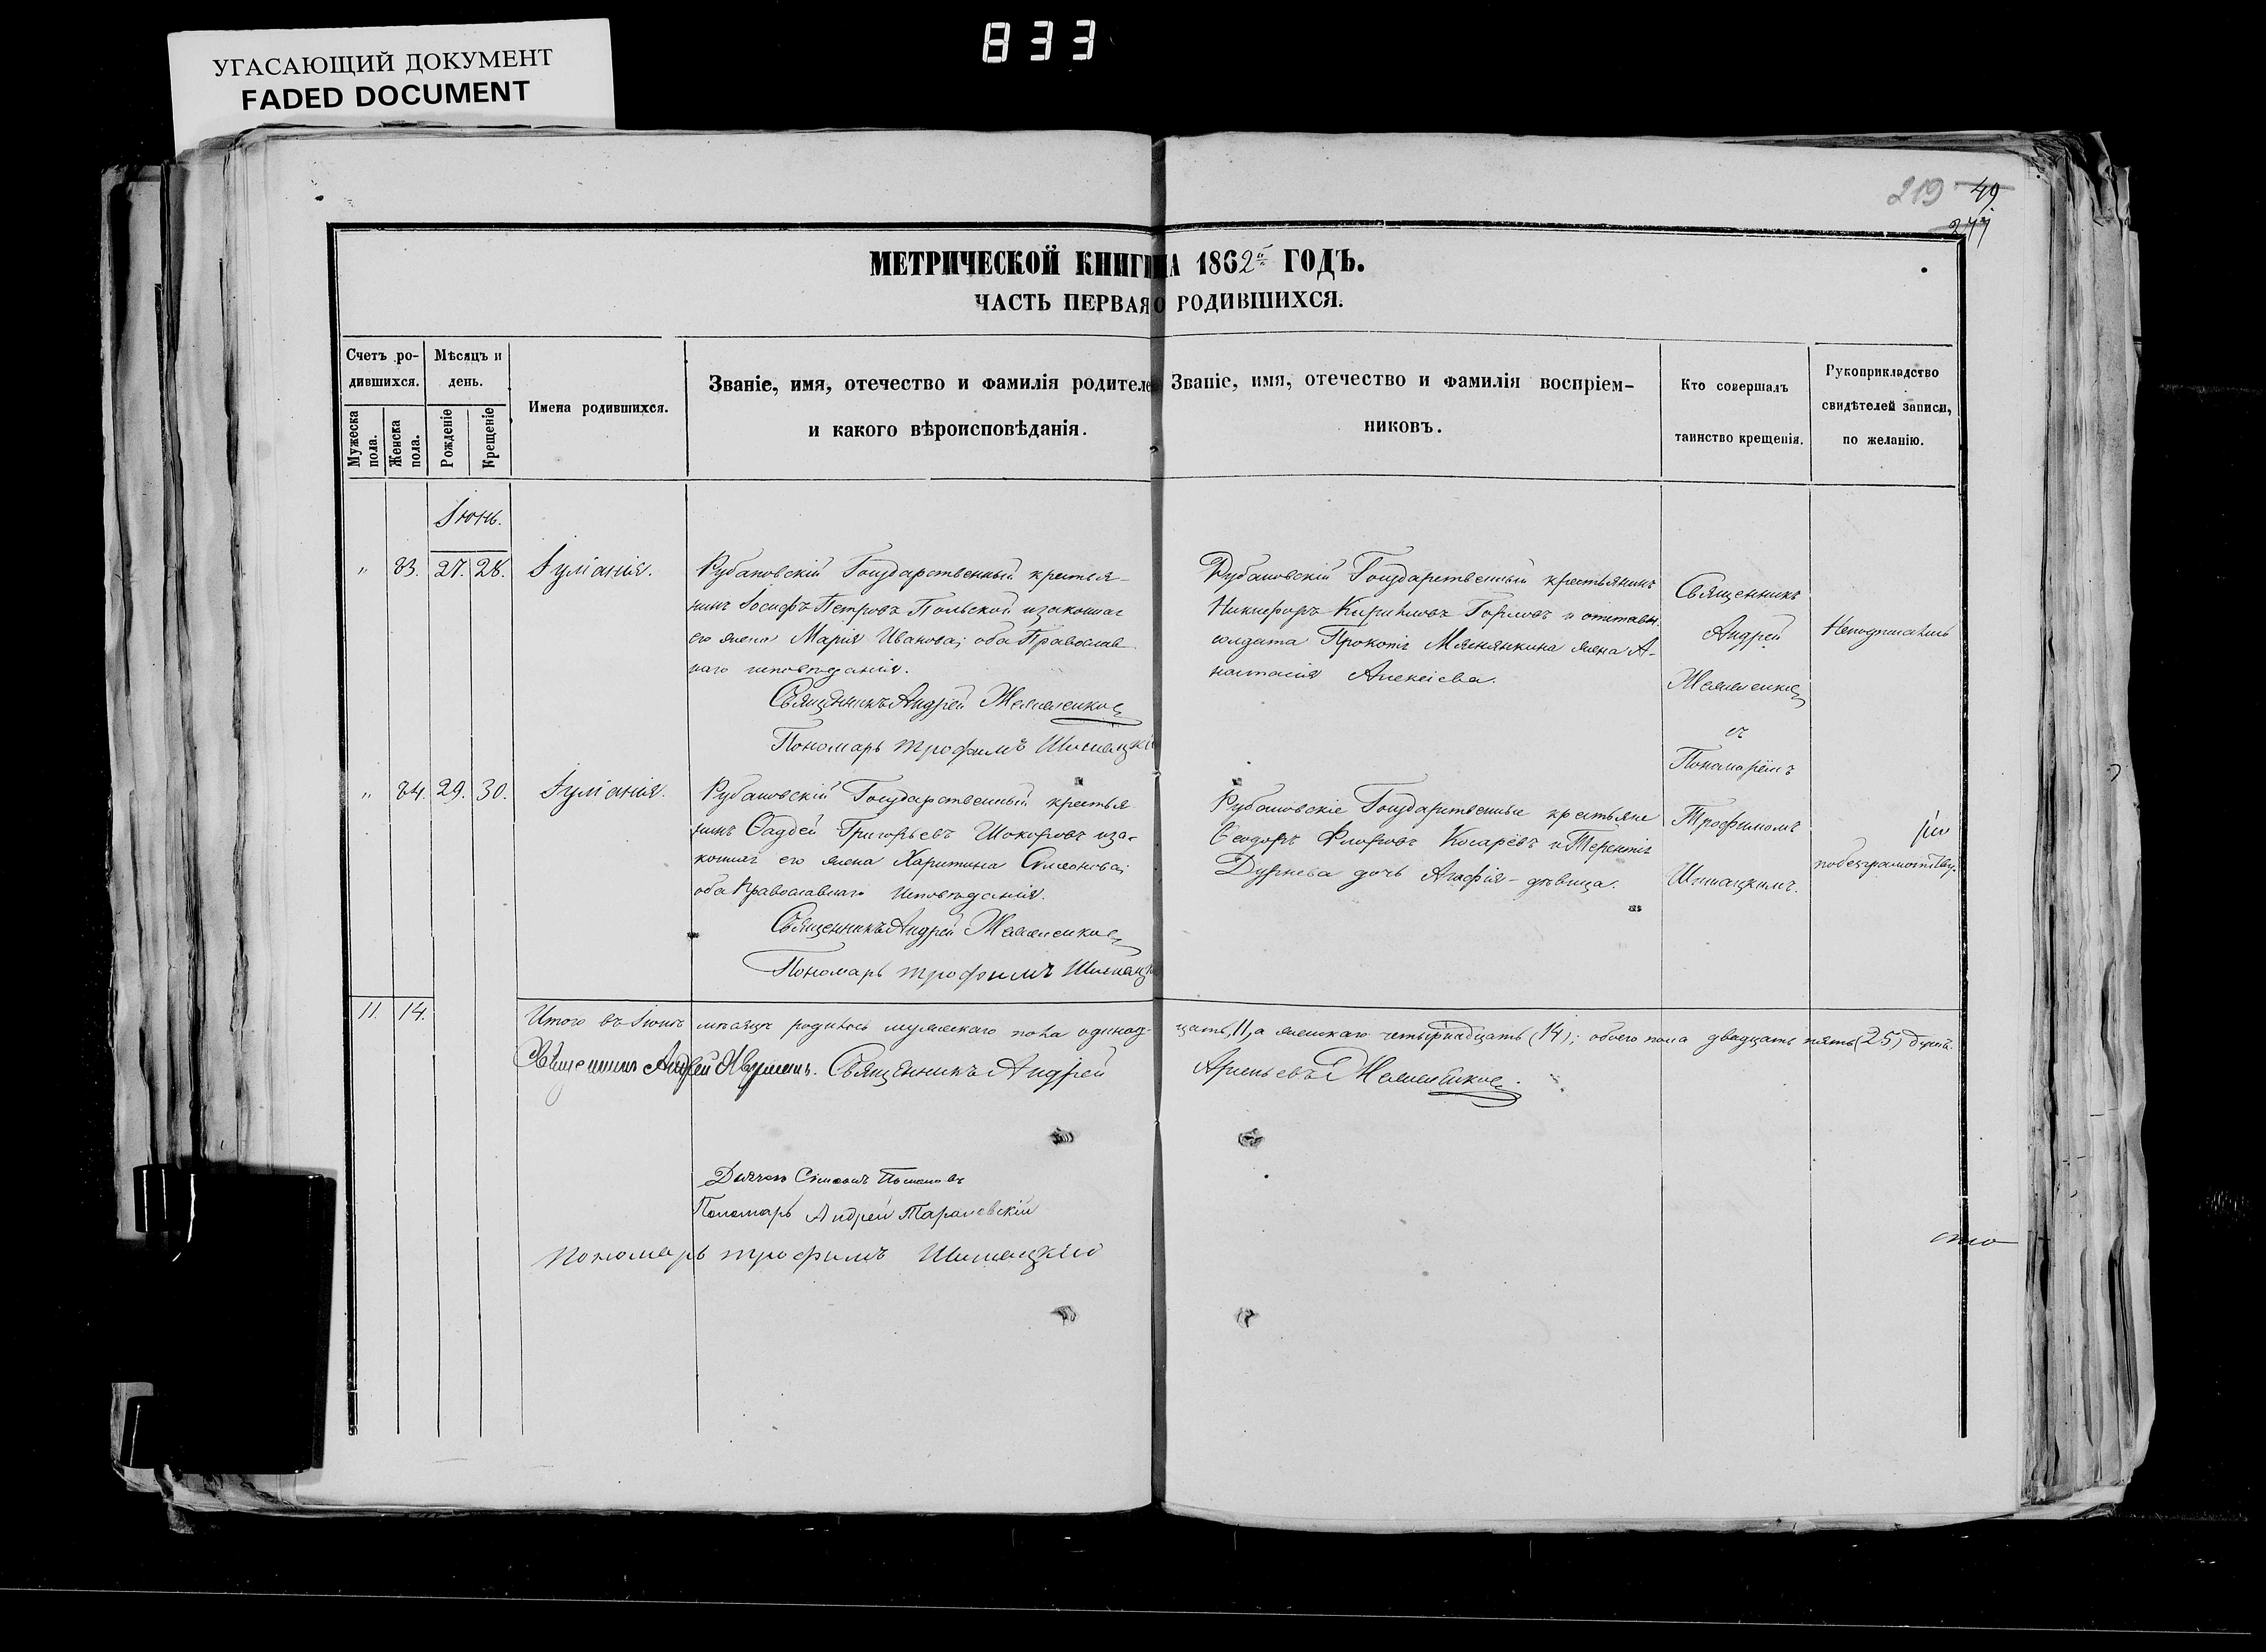 833
УГАСАЮЩИЙ ДОКУМЕНТ
FADED DOCUMENT
219 49
МЕТРИЧЕСКОЙ КНИГИ НА 1862й ГОДЪ.
ЧАСТЬ ПЕРВАЯ О РОДИВШИХСЯ.
Счетъ ро-
дившихся.
Мужеска пола.
Женска пола.
Мѣсяцъ и
день.
Рожденіе
Крещеніе
Имена родившихся.
Званіе, имя, отечество и фамилія родителей
и какого вѣроисповѣданія.
Званіе, имя, отечество и фамилія воспріем-
никовъ.
Кто совершалъ
таинство крещенія.
Рукоприкладство
свидѣтелей записи,
по желанію.
Іюнь.
„ 83. 27. 28. Іуліанія.
Рубановскій Государственный крестья-
нинъ Іосифъ Петровъ Польской и законная
его жена Марія Иванова; оба Православ
наго исповѣданія.
Священникъ Андрей
Пономарь Трофимъ Шишацкій
Рубановскій Государственный крестьянинъ
Никифоръ Кириловъ Горловъ и отставн.
солдата Прокопія жена А-
настасія Алексіева.
Священникъ
Андрей
съ
Пономарёмъ
Трофимомъ
Шишацкимъ.
Неподписались
по безграмотству.
„ 84. 29. 30. Іуліанія.
Рубановскій Государственный крестья
нинъ Фаддей Григорьевъ Шокоровъ и за-
конная его жена Харитина Симеонова;
оба Православнаго Исповѣданія.
Священникъ Андрей
Пономарь Трофимъ Шишацкій
Рубановскіе Государственные крестьяне
Феодоръ Фроловъ Косарёвъ и Терентія
Дурнева дочь Агафія - дѣвица.
11. 14.
Итого въ Іюнѣ мѣсяцѣ родилось мужескаго пола одинад-
цать, 11, а женскаго четырнадцать (14); обоего пола двадцать пять (25) душъ.
Священникъ Андрей Священникъ Андрей
Арсеньевъ
Дьячекъ Симеонъ
Пономарь Андрей Тарановскій
Пономарь Трофимъ Шишацкій